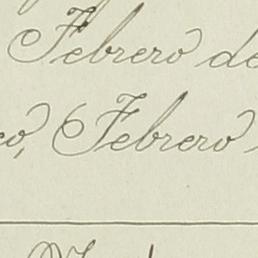 Febrero de
Febrero